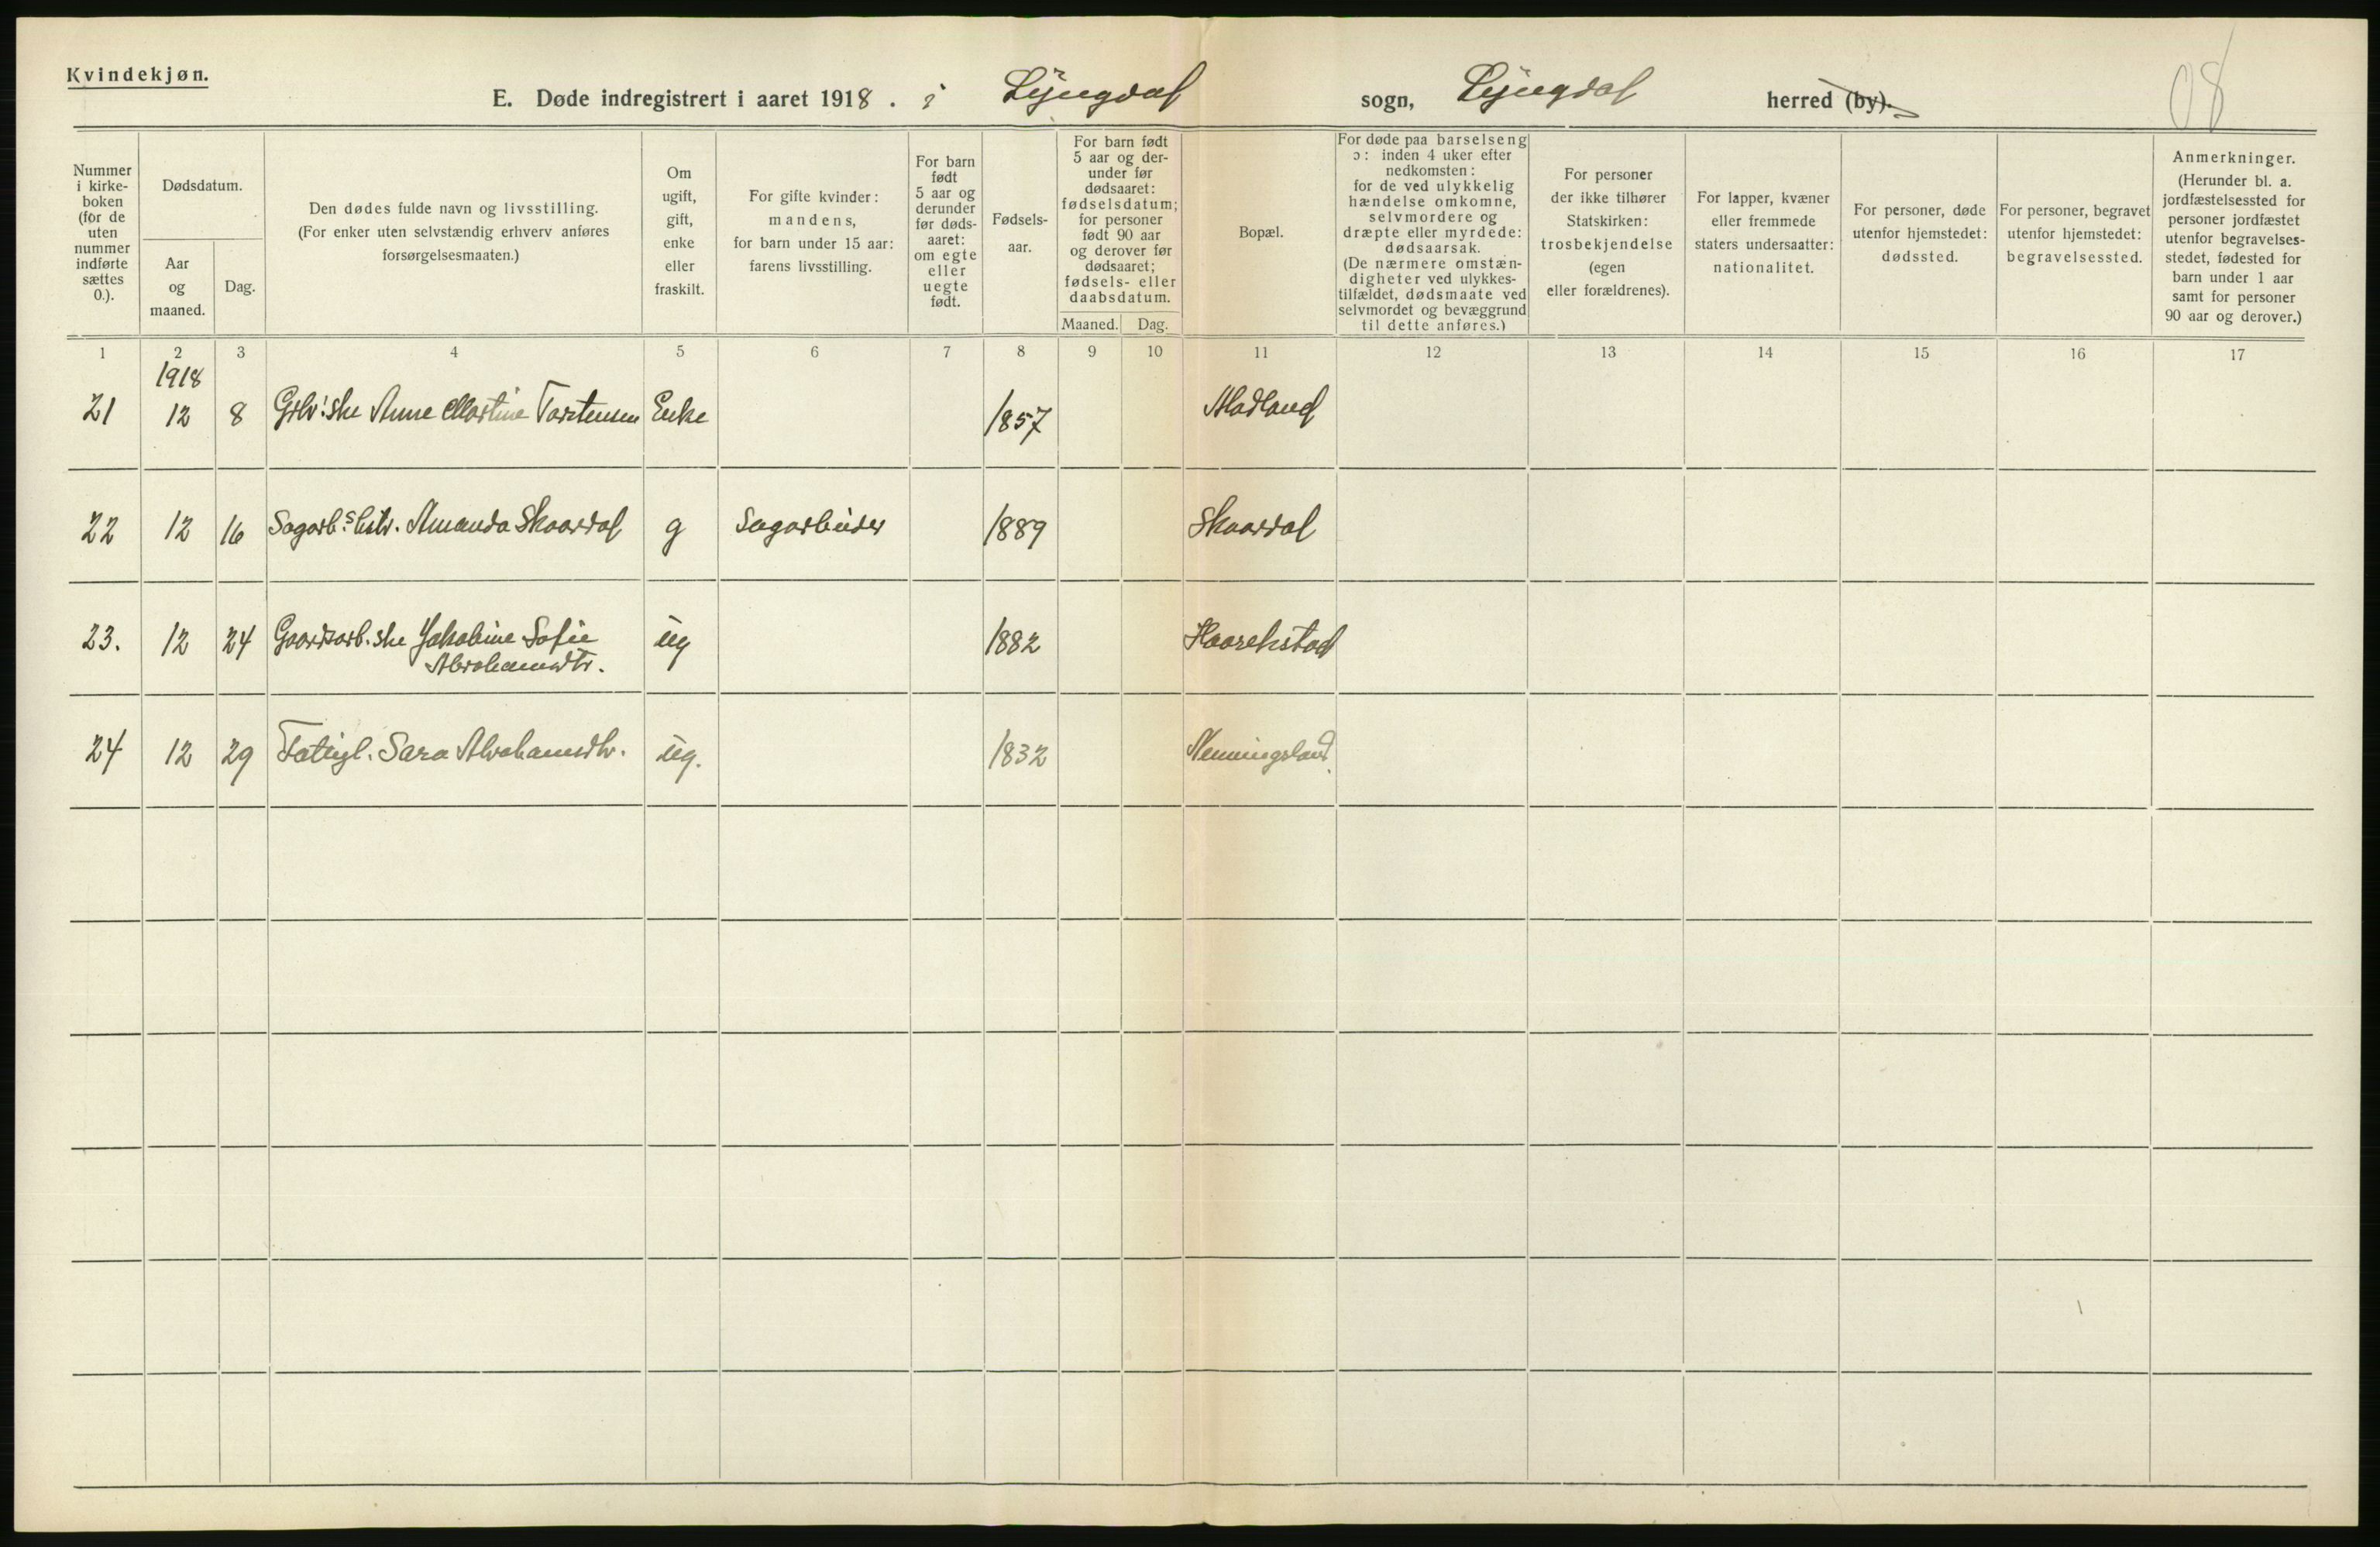 Kvindekjøn.
E. Døde indregistrert i aaret 1918. i Lyngdal sogn, Lyngdal herred (by).
08
Nummer i kirke-boken (for de uten nummer indførte sættes 0.).
Dødsdatum.
Aar og maaned.
Dag.
Den dødes fulde navn og livsstilling.
(For enker uten selvstændig erhverv anføres forsørgelsesmaaten.)
Om ugift, gift, enke eller fraskilt.
For gifte kvinder: mandens, for barn under 15 aar: farens livsstilling.
For barn født 5 aar og derunder før døds-aaret: om egte eller uegte født.
Fødsels-aar.
For barn født 5 aar og der-under før dødsaaret: fødselsdatum; for personer født 90 aar og derover før dødsaaret; fødsels- eller daabsdatum.
Maaned.
Dag.
Bopæl.
For døde paa barselseng ɔ: inden 4 uker efter nedkomsten: for de ved ulykkelig hændelse omkomne, selvmordere og dræpte eller myrdede: dødsaarsak. (De nærmere omstæn-digheter ved ulykkes-tilfældet, dødsmaate ved selvmordet og bevæggrund til dette anføres.)
For personer der ikke tilhører Statskirken: trosbekjendelse (egen eller forældrenes).
For lapper, kvæner eller fremmede staters undersaatter: nationalitet.
For personer, døde utenfor hjemstedet: dødssted.
For personer, begravet utenfor hjemstedet: begravelsessted.
Anmerkninger. (Herunder bl. a. jordfæstelsessted for personer jordfæstet utenfor begravelses-stedet, fødested for barn under 1 aar samt for personer 90 aar og derover.)
1 2 3 4 5 6 7 8 9 10 11 12 13 14 15 16 17
1918
21 12 8 Anne Martine Torstensen Enke 1857 Aadland
22 12 16 Sagarb.s hstr. Amanda Skaardal g Sagarbeider 1889 Skaardal
23. 12 24 Gaardsarb.ske Jakobine Sofie ug 1882 Haarekstad
Abrahamsdtr.
24 12 29 Fattigl. Sara Abrahamsdtr. ug. 1832